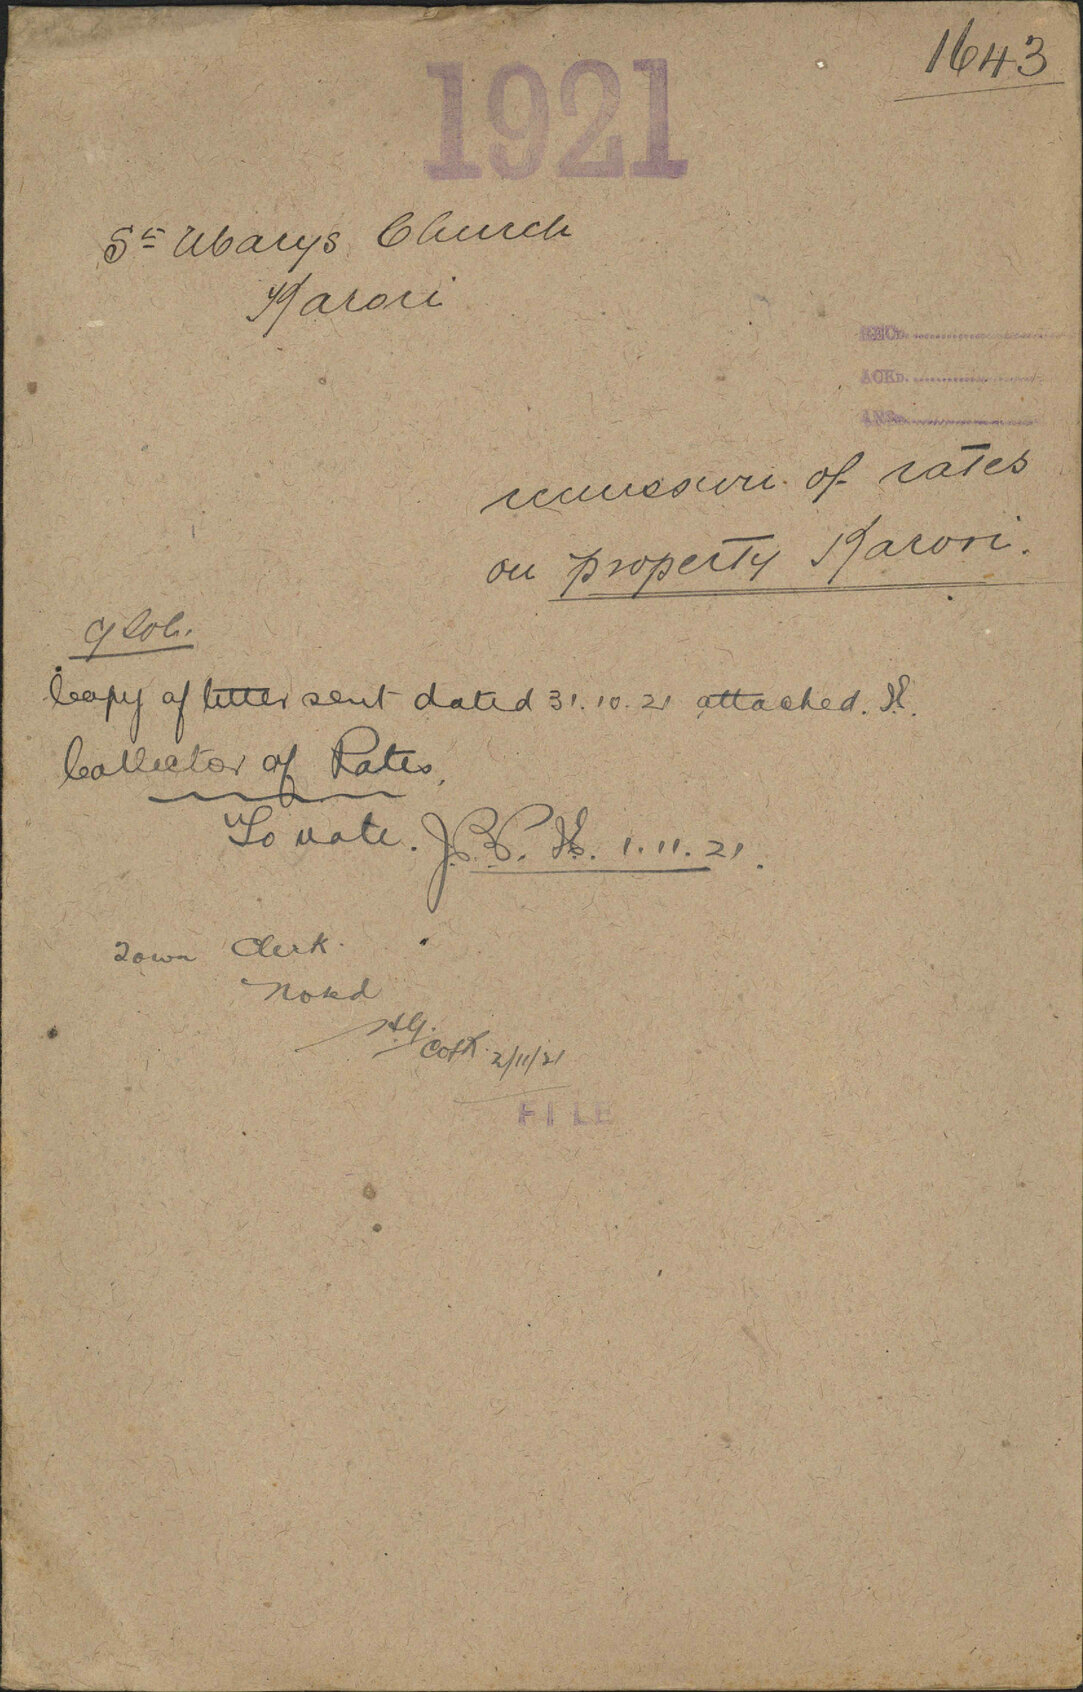 1643
1921
St Marys Church
Karori
RECD.
ACKD.
ANSD.
remission of rates
on property Karori.
Copy of letter sent dated 31.10.21 attached.
Collector of Rates.
To note. 1.11.21.
Town Clerk.
Noted
2/11/21
FILE